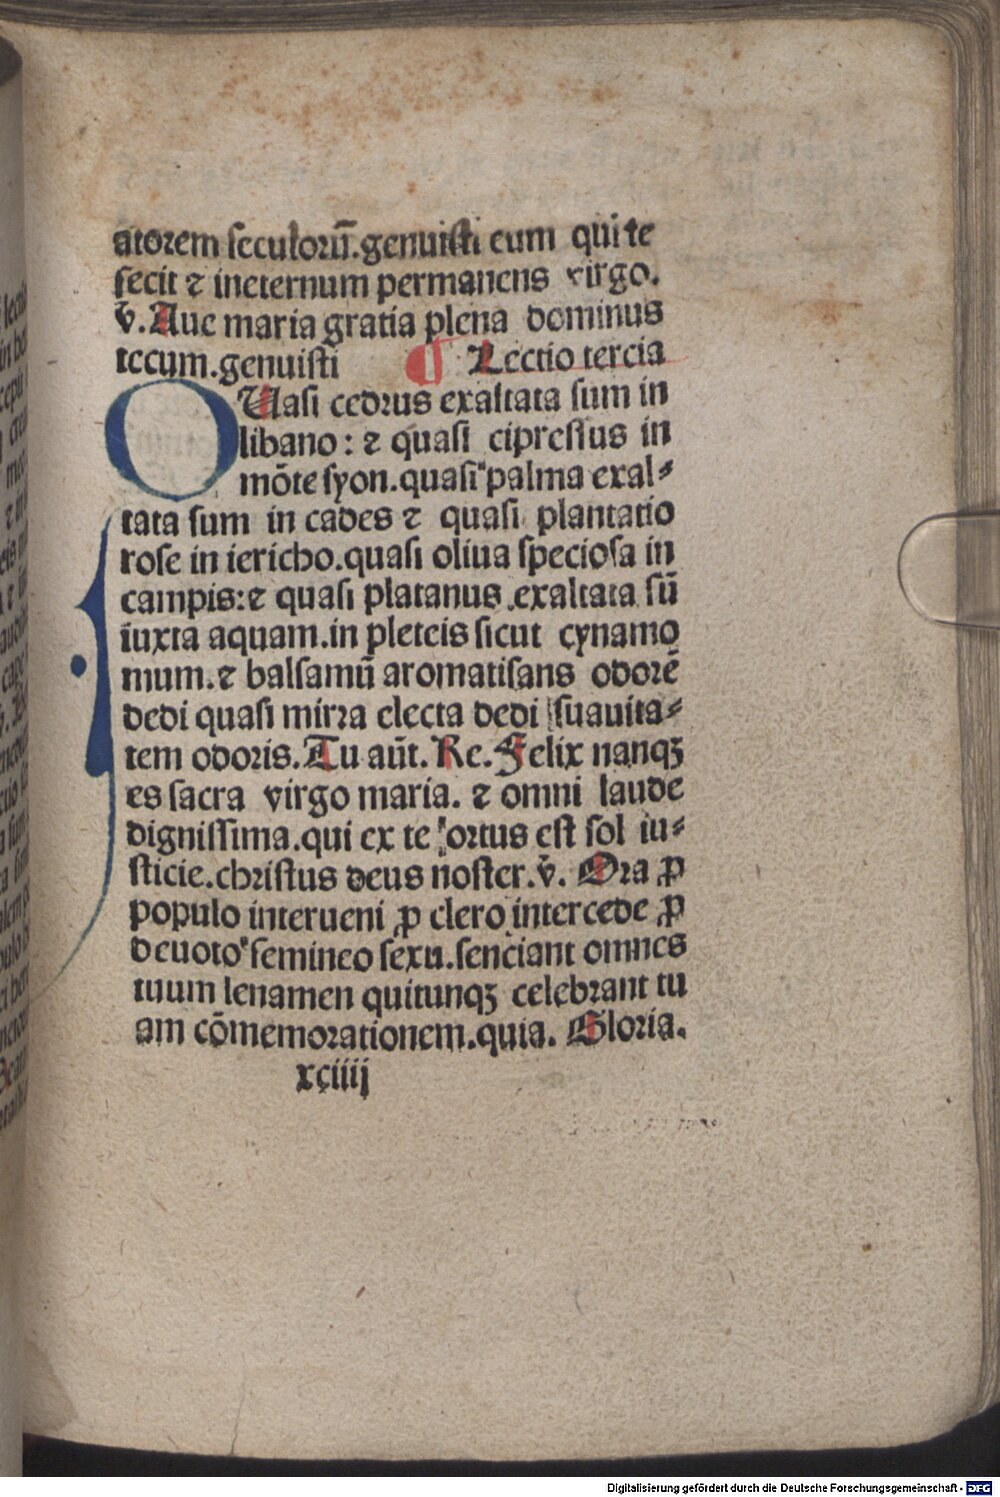 atorem seculorū.genuisti eum qui te
fecit ⁊ ineternum permanens virgo.
v̄.Aue maria gratia plena dominus
tecum.genuisti ¶ Lectio tercia
QUasi cedrus exaltata sum in
libano: ⁊ quasi cipressus in
mōte syon.quasi palma exal⸗
tata sum in cades ⁊ quasi plantatio
rose in iericho.quasi oliua speciosa in
campis:⁊ quasi platanus exaltata sū
iuxta aquam.in pleteis sicut cynamo
mum.⁊ balsamū aromatisans odorē
dedi quasi mirra electa dedi suauita⸗
tem odoris.Tu aūt.Re.Felix nanqꝫ
es sacra virgo maria. ⁊ omni laude
dignissima.qui ex te ortus est sol iu⸗
sticie.christus deus noster.v̄. Ora ꝓ
populo interueni ꝓ clero intercede ꝓ
deuoto femineo sexu.senciant omnes
tuum lenamen quitunqꝫ celebrant tu
am cōmemorationem.quia. Gloria.
xciiij
Digitalisierung gefördert durch die Deutsche Forschungsgemeinschaft - DFG